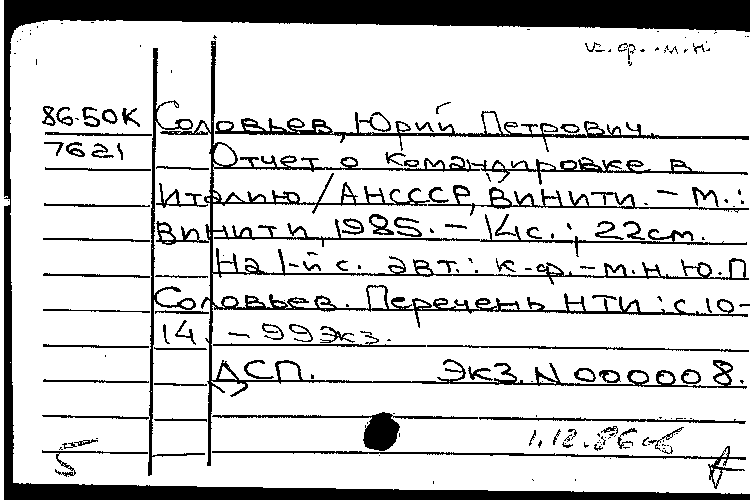 к.ф.-м.н.
86-50К Соловьев, Юрий Петрович.
7621 Отчет о командировке в
Италию / АНСССР, ВИНИТИ. - М.:
ВИНИТИ, 1985. - 14с.; 22см.
На 1-й с. авт.: к-ф.-м.н. Ю.П
Соловьев. Перечень НТИ: с.10-
14. - 99экз.
ДСП. Экз. N 000008.
1.12.86
5